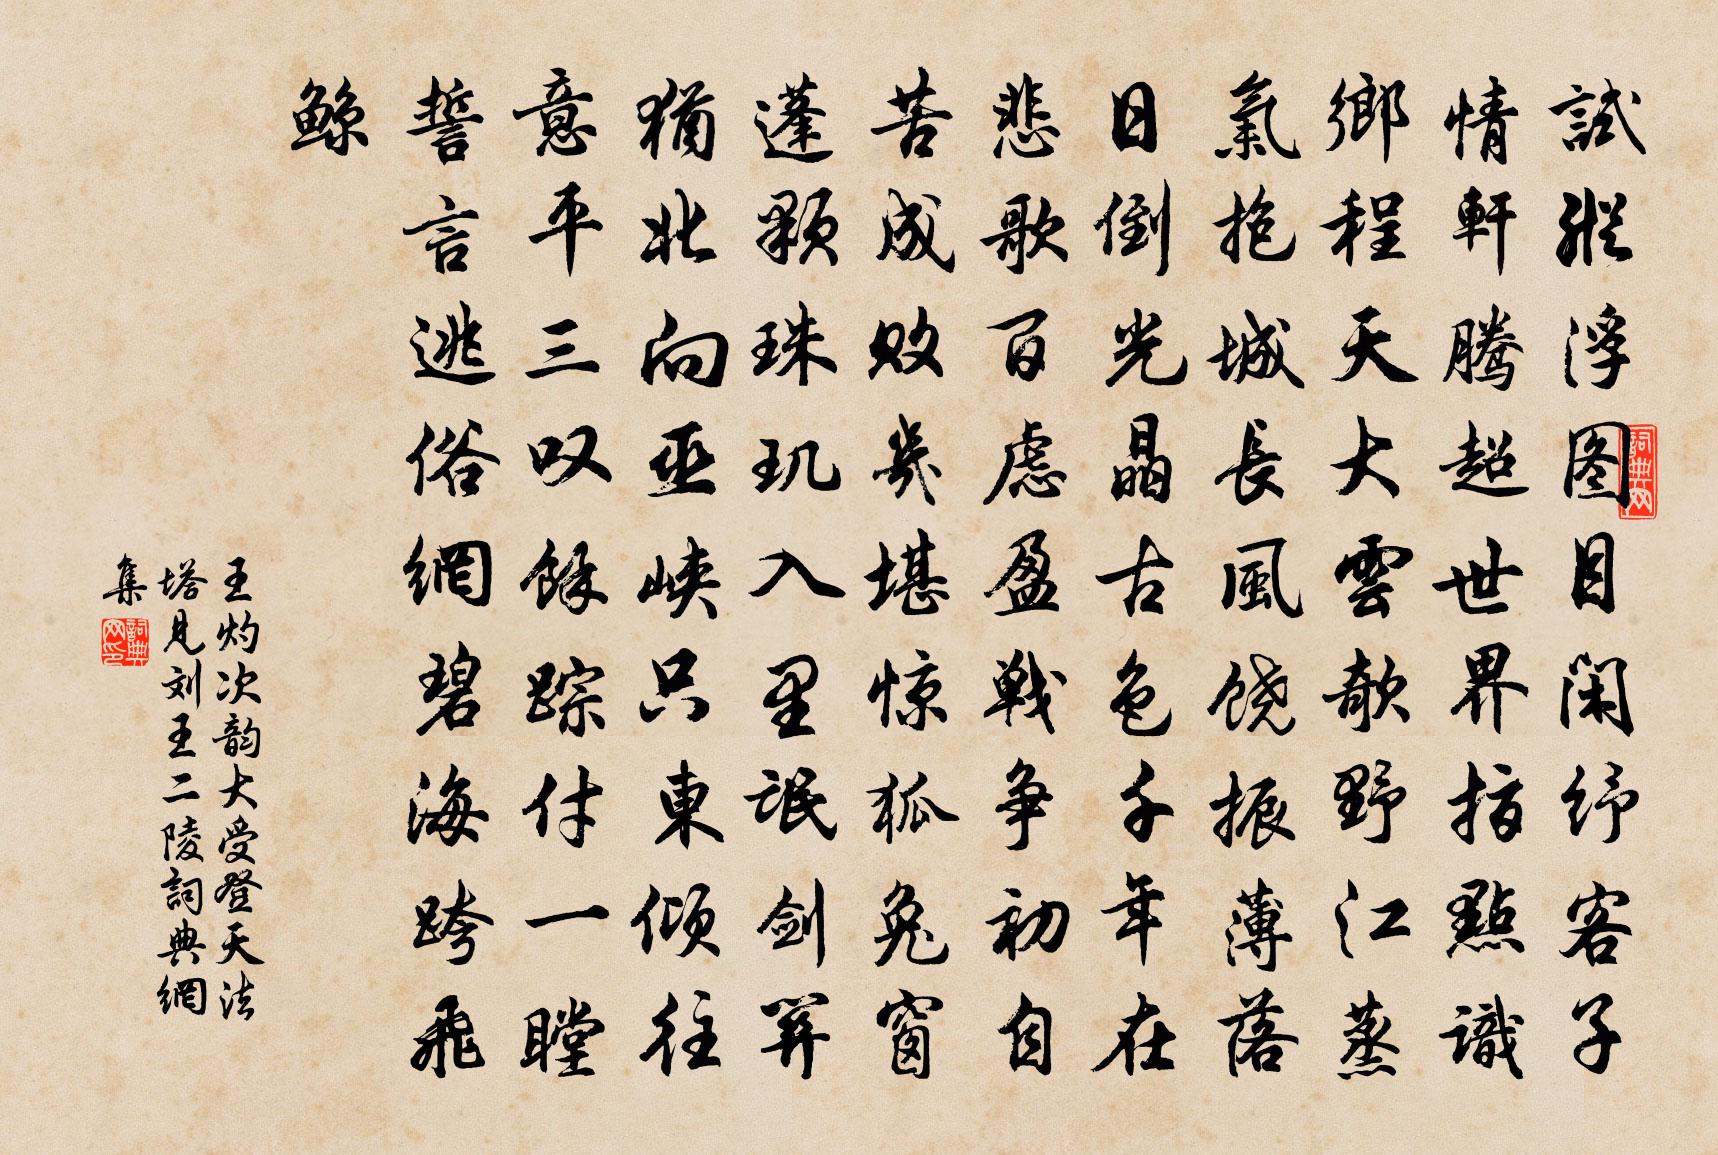 試縱浮图目闲纾客子
情軒騰超世界指點識
鄉程天大雲欹野江蒸
氣抱城長風饶振薄落
日倒光晶古色千年在
悲歌百虑盈戰争初自
苦成败幾堪惊狐兔窗
蓬颗珠玑入里氓剑舞
猶北向巫峡只東倾往
意平三叹餘踪付一瞠
誓言逃俗網碧海跨飛
鲸
王灼次韵大受登天法
塔見刘王二陵詞典網
集
詞典网
詞典网印